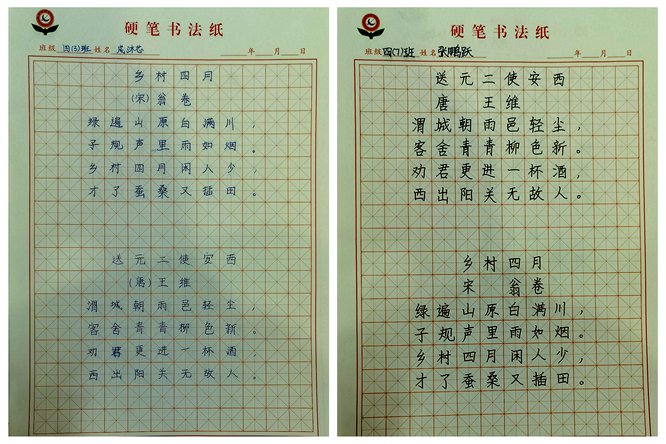 硬笔书法纸
班级 四(3)班 姓名 年 月 日
乡村四月
(宋)翁卷
绿遍山原白满川，
子规声里雨如烟。
乡村四月闲人少，
才了蚕桑又插田。
送元二使安西
(唐)王维
渭城朝雨邑轻尘，
客舍青青柳色新。
劝君更进一杯酒，
西出阳关无故人。
硬笔书法纸
班级 四(7)班 姓名 张鹏跃 年 月 日
送元二使安西
唐 王维
渭城朝雨邑轻尘，
客舍青青柳色新。
劝君更进一杯酒，
西出阳关无故人。
乡村四月
宋 翁卷
绿遍山原白满川，
子规声里雨如烟。
乡村四月闲人少，
才了蚕桑又插田。